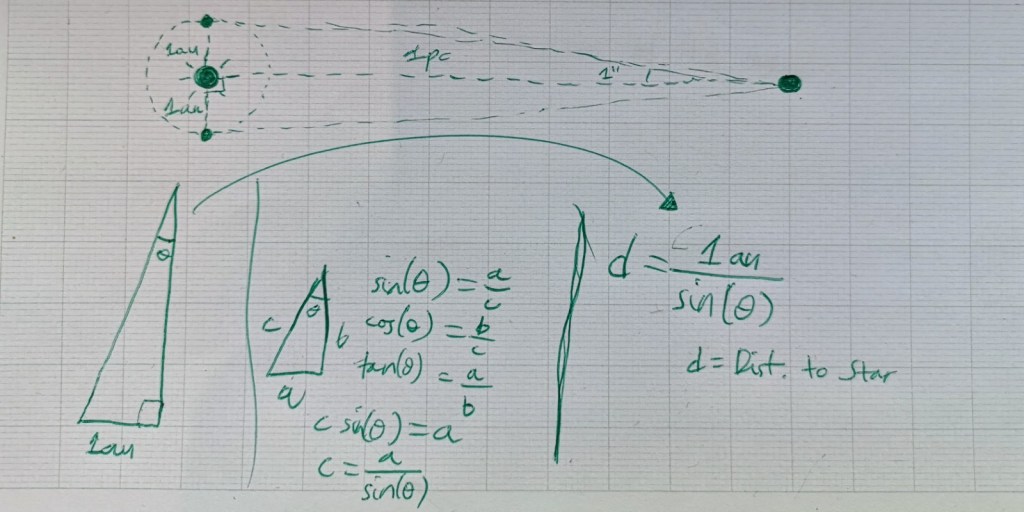 1au
1pc
1"
1au
θ
1au
θ
c
b
a
sin(θ) = a/c
cos(θ) = b/c
tan(θ) = a/b
c sin(θ) = a
c = a/sin(θ)
d = 1 au/sin(θ)
d = Dist. to Star